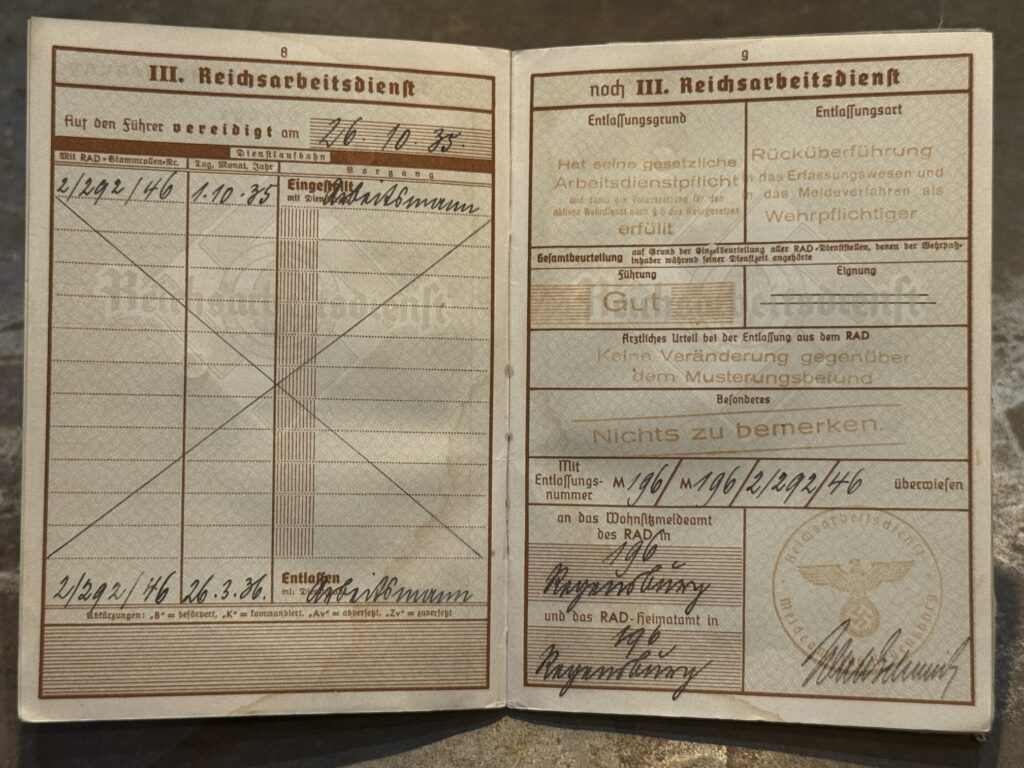 8
III. Reichsarbeitsdienst
Auf den Führer vereidigt am 26. 10. 35.
Dienstlaufbahn
Mit RAD-Stammrollen-Nr. Tag, Monat, Jahr Vorgang
2/292/46 1.10.35 Eingestellt Arbeitsmann
mit
Reichsarbeitsdienst
2/292/46 26.3.36. Entlassen Arbeitsmann
Abkürzungen: „B" = befördert, „K" = kommandiert, „Av" = abversetzt, „Zv" = zuversetzt
9
noch III. Reichsarbeitsdienst
Entlassungsgrund
Hat seine gesetzliche
Arbeitsdienstpflicht
und damit die Voraussetzung für den
aktiven Wehrdienst nach § 8 des Wehrgesetzes
erfüllt
Entlassungsart
Rücküberführung
in das Erfassungswesen und
in das Meldeverfahren als
Wehrpflichtiger
Gesamtbeurteilung auf Grund der Einzelbeurteilung aller RAD-Dienststellen, denen der Wehrpaß-
inhaber während seiner Dienstzeit angehörte
Führung
Gut
Eignung
Reichsarbeitsdienst
Ärztliches Urteil bei der Entlassung aus dem RAD
Keine Veränderung gegenüber
dem Musterungsbefund
Besonderes
Nichts zu bemerken.
Mit
Entlassungs-
nummer M 196/ M 196/2/292/46 überwiesen
an das Wohnsitzmeldeamt
des RAD in
196
Regensburg
und das RAD-Heimatamt in
196
Regensburg
Reichsarbeitsdienst